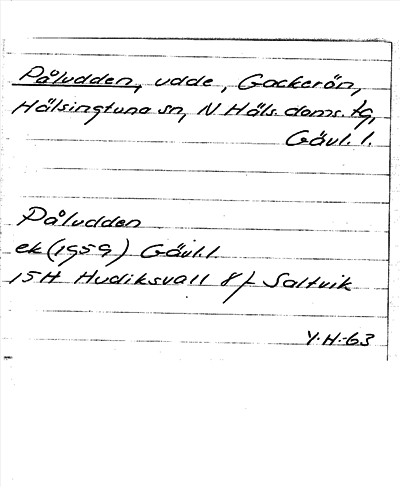 Påludden, udde, Gackerön,
Hälsingtuna sn, N Häls. doms. tg,
Gävl. l.
Påludden
ek (1959) Gävl. l.
15H Hudiksvall 8f Saltvik
Y. H.-63